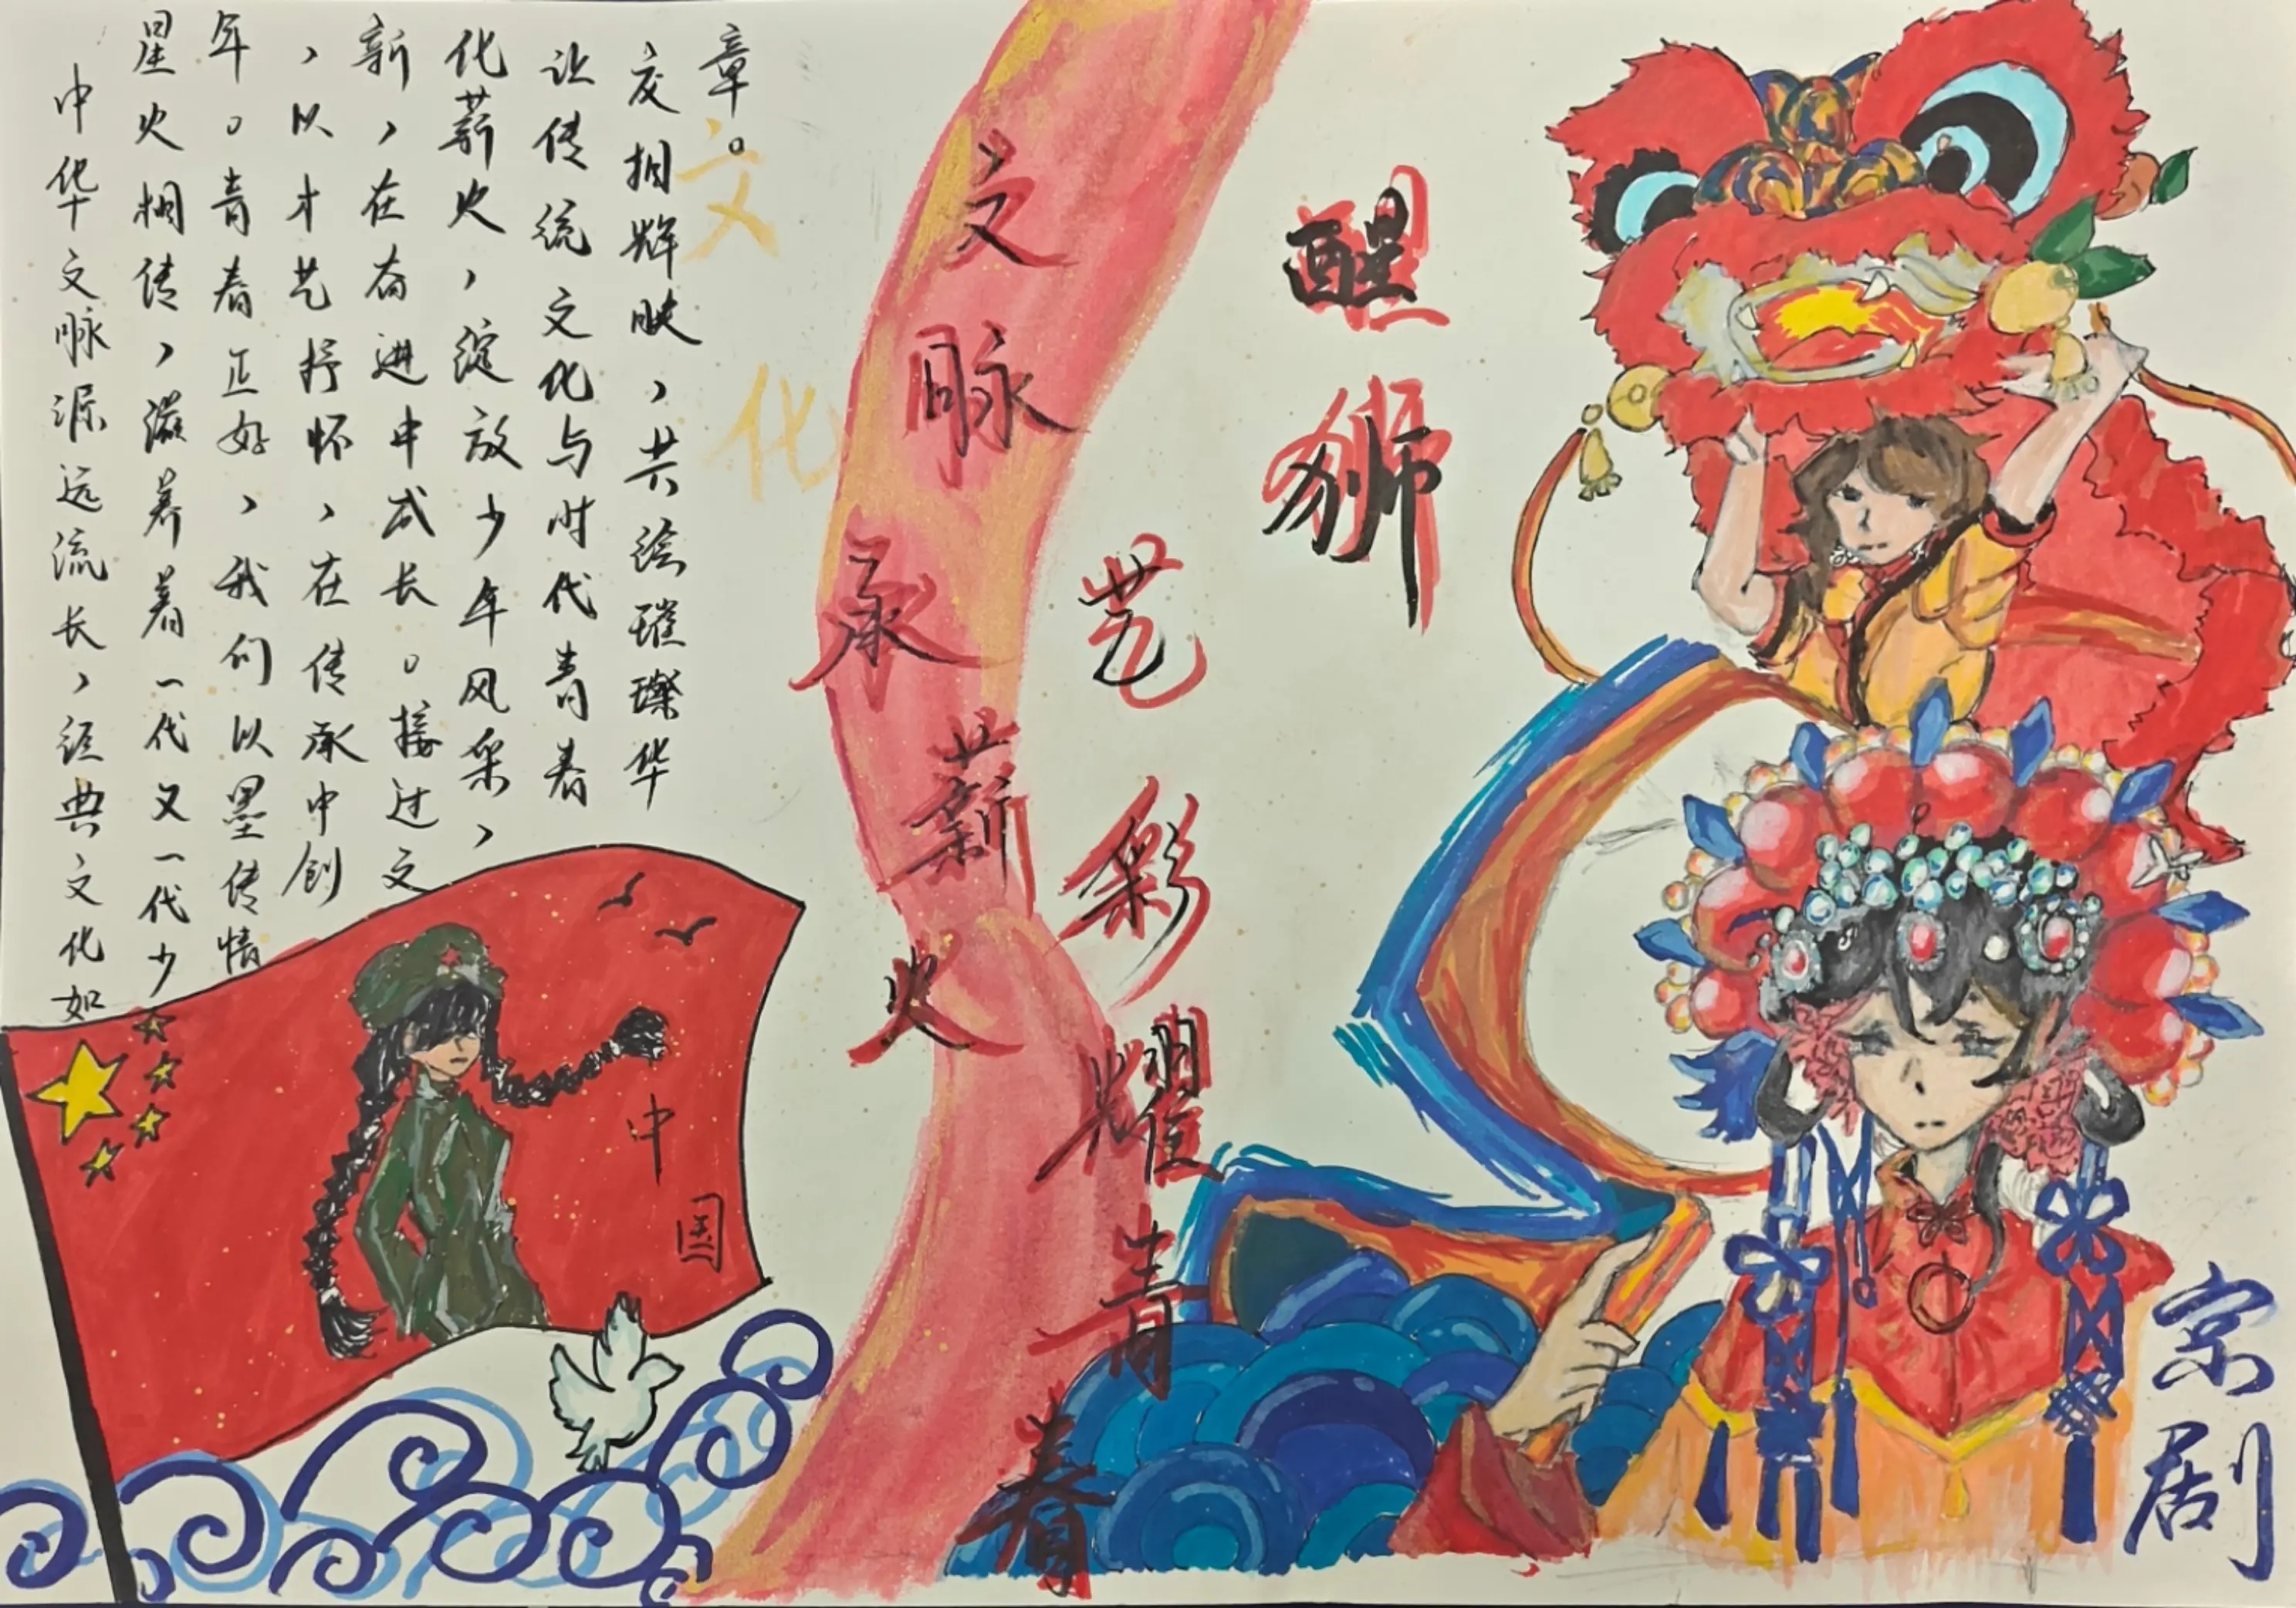 中华文脉源远流长，经典文化如
星火相传，滋养着一代又一代少
年。青春正好，我们以墨传情
，以才艺抒怀，在传承中创
新，在奋进中成长。接过文
化薪火，绽放少年风采，
让传统文化与时代青春
交相辉映，共绘璀璨华
章。
文化
文脉承薪火
艺彩耀青春
醒狮
京剧
中国